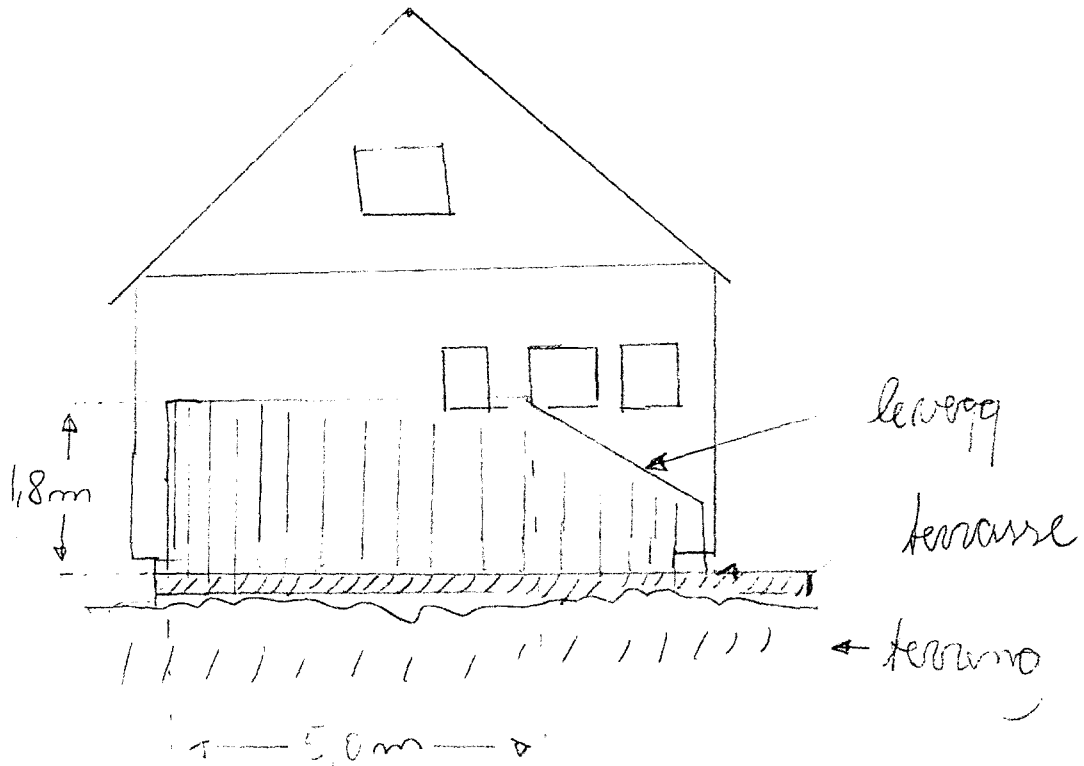 1,8m
levegg
terrasse
terreng
5,0m